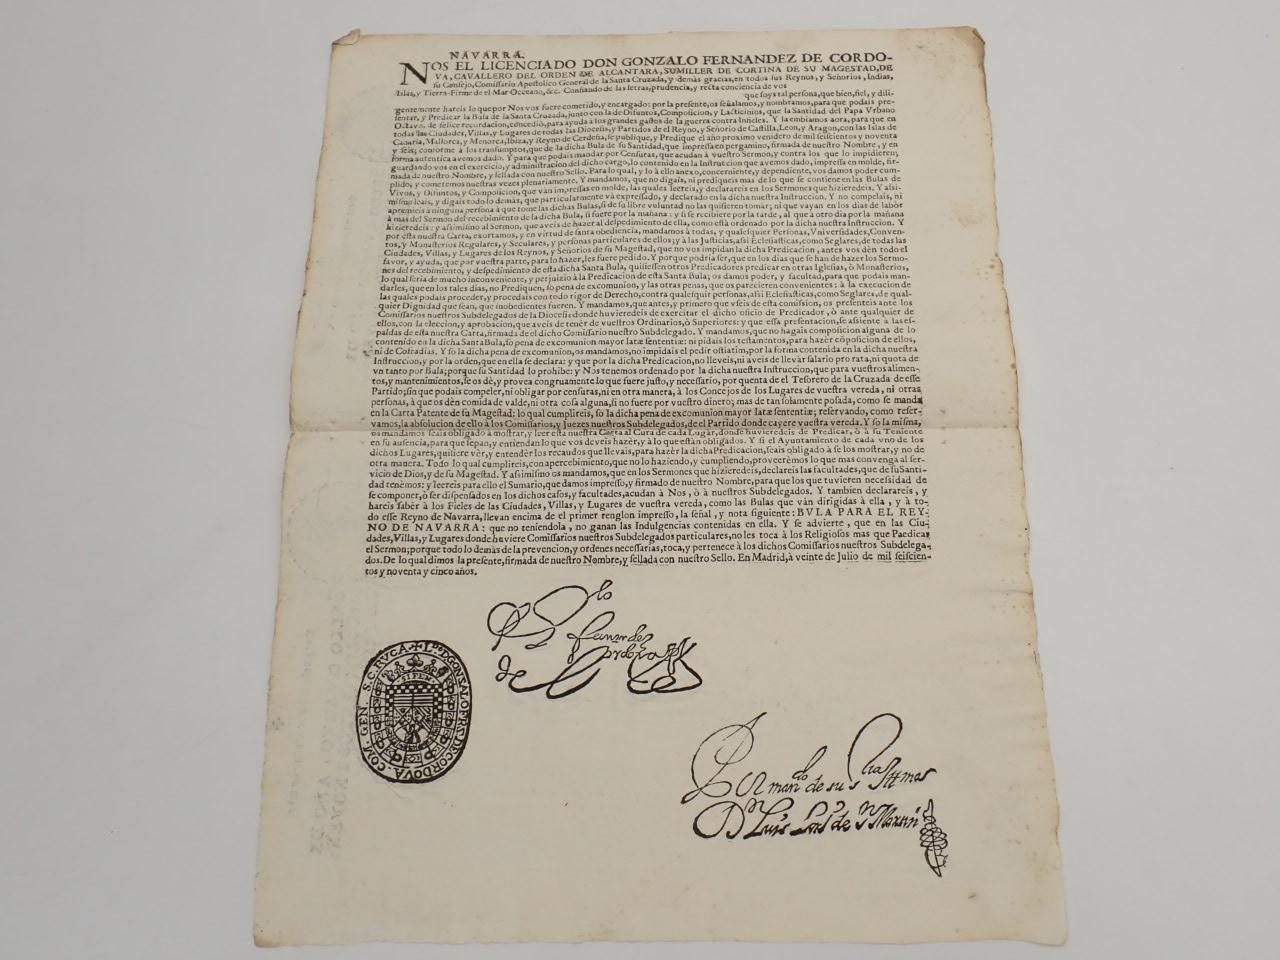 NAVARRA.
NOS EL LICENCIADO DON GONZALO FERNANDEZ DE CORDO-
VA, CAVALLERO DEL ORDEN DE ALCANTARA, SUMILLER DE CORTINA DE SU MAGESTAD, DE
su Consejo, Comissario Apostolico General de la Santa Cruzada, y demàs gracias, en todos sus Reynos, y Señorios, Indias,
Islas, y Tierra-Firme de el Mar Occeano, &c. Confiando de las letras, prudencia, y recta conciencia de vos
que soys tal persona, que bien, fiel, y dili-
gentemente hareis lo que por Nos vos fuere cometido, y encargado: por la presente, os señalamos, y nombramos, para que podais pre-
sentar, y Predicar la Bula de la Santa Cruzada, junto con la de Difuntos, Composicion, y Lacticinios, que la Santidad del Papa Vrbano
Octavo, de felice recordacion, concediò, para ayuda à los grandes gastos de la guerra contra Infieles. Y la embiamos aora, para que en
todas las Ciudades, Villas, y Lugares de todas las Diocesis, y Partidos de el Reyno, y Señorio de Castilla, Leon, y Aragon, con las Islas de
Canaria, Mallorca, y Menorca, Ibiza, y Reyno de Cerdeña, se publique, y Predique el año proximo venidero de mil seiscientos y noventa
y seis; conforme à los transumptos, que de la dicha Bula de su Santidad, que impressa en pergamino, firmada de nuestro Nombre, y en
forma autentica avemos dado. Y para que podais mandar por Censuras, que acudan à vuestro Sermon, y contra los que lo impidieren;
guardando vos en el exercicio, y administracion del dicho cargo, lo contenido en la Instruccion que avemos dado, impressa en molde, fir-
mada de nuestro Nombre, y sellada con nuestro Sello. Para lo qual, y lo à ello anexo, concerniente, y dependiente, vos damos poder cum-
plido, y cometemos nuestras vezes plenariamente. Y mandamos, que no digais, ni prediqueis mas de lo que se contiene en las Bulas de
Vivos, y Difuntos, y Composicion, que vàn impressas en molde, las quales leereis, y declarareis en los Sermones que hizieredeis. Y assi-
mismo leais, y digais todo lo demàs, que particularmente và expressado, y declarado en la dicha nuestra Instruccion. Y no compelais, ni
apremieis à ninguna persona à que tome las dichas Bulas, si de su libre voluntad no las quisieren tomàr; ni que vayan en los dias de labòr
à mas del Sermon del recebimiento de la dicha Bula, si fuere por la mañana: y si se recibiere por la tarde, al que à otro dia por la mañana
hizieredeis: y assimismo al Sermon, que aveis de hazer al despedimiento de ella, como està ordenado por la dicha nuestra Instruccion. Y
por esta nuestra Carta, exortamos, y en virtud de santa obediencia, mandamos à todas, y qualesquier Personas, Vniversidades, Conven-
tos, y Monasterios Regulares, y Seculares, y personas particulares de ellos; y à las Justicias, assi Eclesiasticas, como Seglares, de todas las
Ciudades, Villas, y Lugares de los Reynos, y Señorios de su Magestad, que no vos impidan la dicha Predicacion, antes vos dèn todo el
favor, y ayuda, que por vuestra parte, para lo hazer, les fuere pedido. Y porque podria ser, que en los dias que se han de hazer los Sermo-
nes del recebimiento, y despedimiento de esta dicha Santa Bula, quisiessen otros Predicadores predicar en otras Iglesias, ò Monasterios,
lo qual seria de mucho inconveniente, y perjuizio à la Predicacion de esta Santa Bula; os damos poder, y facultad, para que podais man-
darles, que en los tales dias, no Prediquen, so pena de excomunion, y las otras penas, que os parecieren convenientes: à la execucion de
las quales podais proceder, y procedais con todo rigor de Derecho, contra qualesquir personas, assi Eclesiasticas, como Seglares, de qual-
quier Dignidad que sean, que inobedientes fueren. Y mandamos, que antes, y primero que vseis de esta comission, os presenteis ante los
Comissarios nuestros Subdelegados de la Diocesis donde huvieredeis de exercitar el dicho oficio de Predicador, ò ante qualquier de
ellos, con la eleccion, y aprobacion, que aveis de tenèr de vuestros Ordinarios, ò Superiores: y que essa presentacion, se assiente à las es-
paldas de esta nuestra Carta, firmada de el dicho Comissario nuestro Subdelegado. Y mandamos, que no hagais composicion alguna de lo
contenido en la dicha Santa Bula, so pena de excomunion mayor latæ sententiæ: ni pidais los testamentos, para hazèr cõposicion de ellos,
ni de Cofradias. Y so la dicha pena de excomunion, os mandamos, no impidais el pedir ostiatim, por la forma contenida en la dicha nuestra
Instruccion, y por la orden, que en ella se declara: y que por la dicha Predicacion, no lleveis, ni aveis de llevàr salario pro rata, ni quota de
vn tanto por Bula; porque su Santidad lo prohibe: y Nos tenemos ordenado por la dicha nuestra Instruccion, que para vuestros alimen-
tos, y mantenimientos, se os dè, y provea congruamente lo que fuere justo, y necessario, por quenta de el Tesorero de la Cruzada de esse
Partido; sin que podais compeler, ni obligar por censuras, ni en otra manera, à los Concejos de los Lugares de vuestra vereda, ni otras
personas, à que os dèn comida de valde, ni otra cosa alguna, si no fuere por vuestro dinero; mas de tan solamente posada, como se manda
en la Carta Patente de su Magestad: lo qual cumplireis, so la dicha pena de excomunion mayor latæ sententiæ; reservando, como reser-
vamos, la absolucion de ello à los Comissarios, y Juezes nuestros Subdelegados, de el Partido donde cayere vuestra vereda. Y so la misma,
os mandamos seais obligado à mostrar, y leer esta nuestra Carta al Cura de cada Lugar, donde huvieredeis de Predicar, ò à su Teniente
en su ausencia, para que sepan, y entiendan lo que vos deveis hazèr, y à lo que estàn obligados. Y si el Ayuntamiento de cada vno de los
dichos Lugares, quisiere vèr, y entendèr los recaudos que llevais, para hazèr la dicha Predicacion, seais obligado à se los mostrar, y no de
otra manera. Todo lo qual cumplireis, con apercebimiento, que no lo haziendo, y cumpliendo, proveerèmos lo que mas convenga al ser-
vicio de Dios, y de su Magestad. Y assimismo os mandamos, que en los Sermones que hizieredeis, declareis las facultades, que de su Santi-
dad tenèmos: y leereis para ello el Sumario, que damos impresso, y firmado de nuestro Nombre, para que los que tuvieren necessidad de
se componer, ò ser dispensados en los dichos casos, y facultades, acudan à Nos, ò à nuestros Subdelegados. Y tambien declarareis, y
hareis sabèr à los Fieles de las Ciudades, Villas, y Lugares de vuestra vereda, como las Bulas que vàn dirigidas à ella, y à to-
do esse Reyno de Navarra, llevan encima de el primer renglon impresso, la señal, y nota siguiente: BVLA PARA EL REY-
NO DE NAVARRA: que no teniendola, no ganan las Indulgencias contenidas en ella. Y se advierte, que en las Ciu-
dades, Villas, y Lugares donde huviere Comissarios nuestros Subdelegados particulares, no les toca à los Religiosos mas que Paedicar
el Sermon; porque todo lo demàs de la prevencion, y ordenes necessarias, toca, y pertenece à los dichos Comissarios nuestros Subdelega-
dos. De lo qual dimos la presente, firmada de nuestro Nombre, y sellada con nuestro Sello. En Madrid, à veinte de Julio de mil seiscien-
tos y noventa y cinco años.
COM. GEN. S. CRVCA ✠ L.do D. GONZALO FRZ. DE CORDOVA.
Por mando de su Sria Illma
Dn Luis de Sn Martin